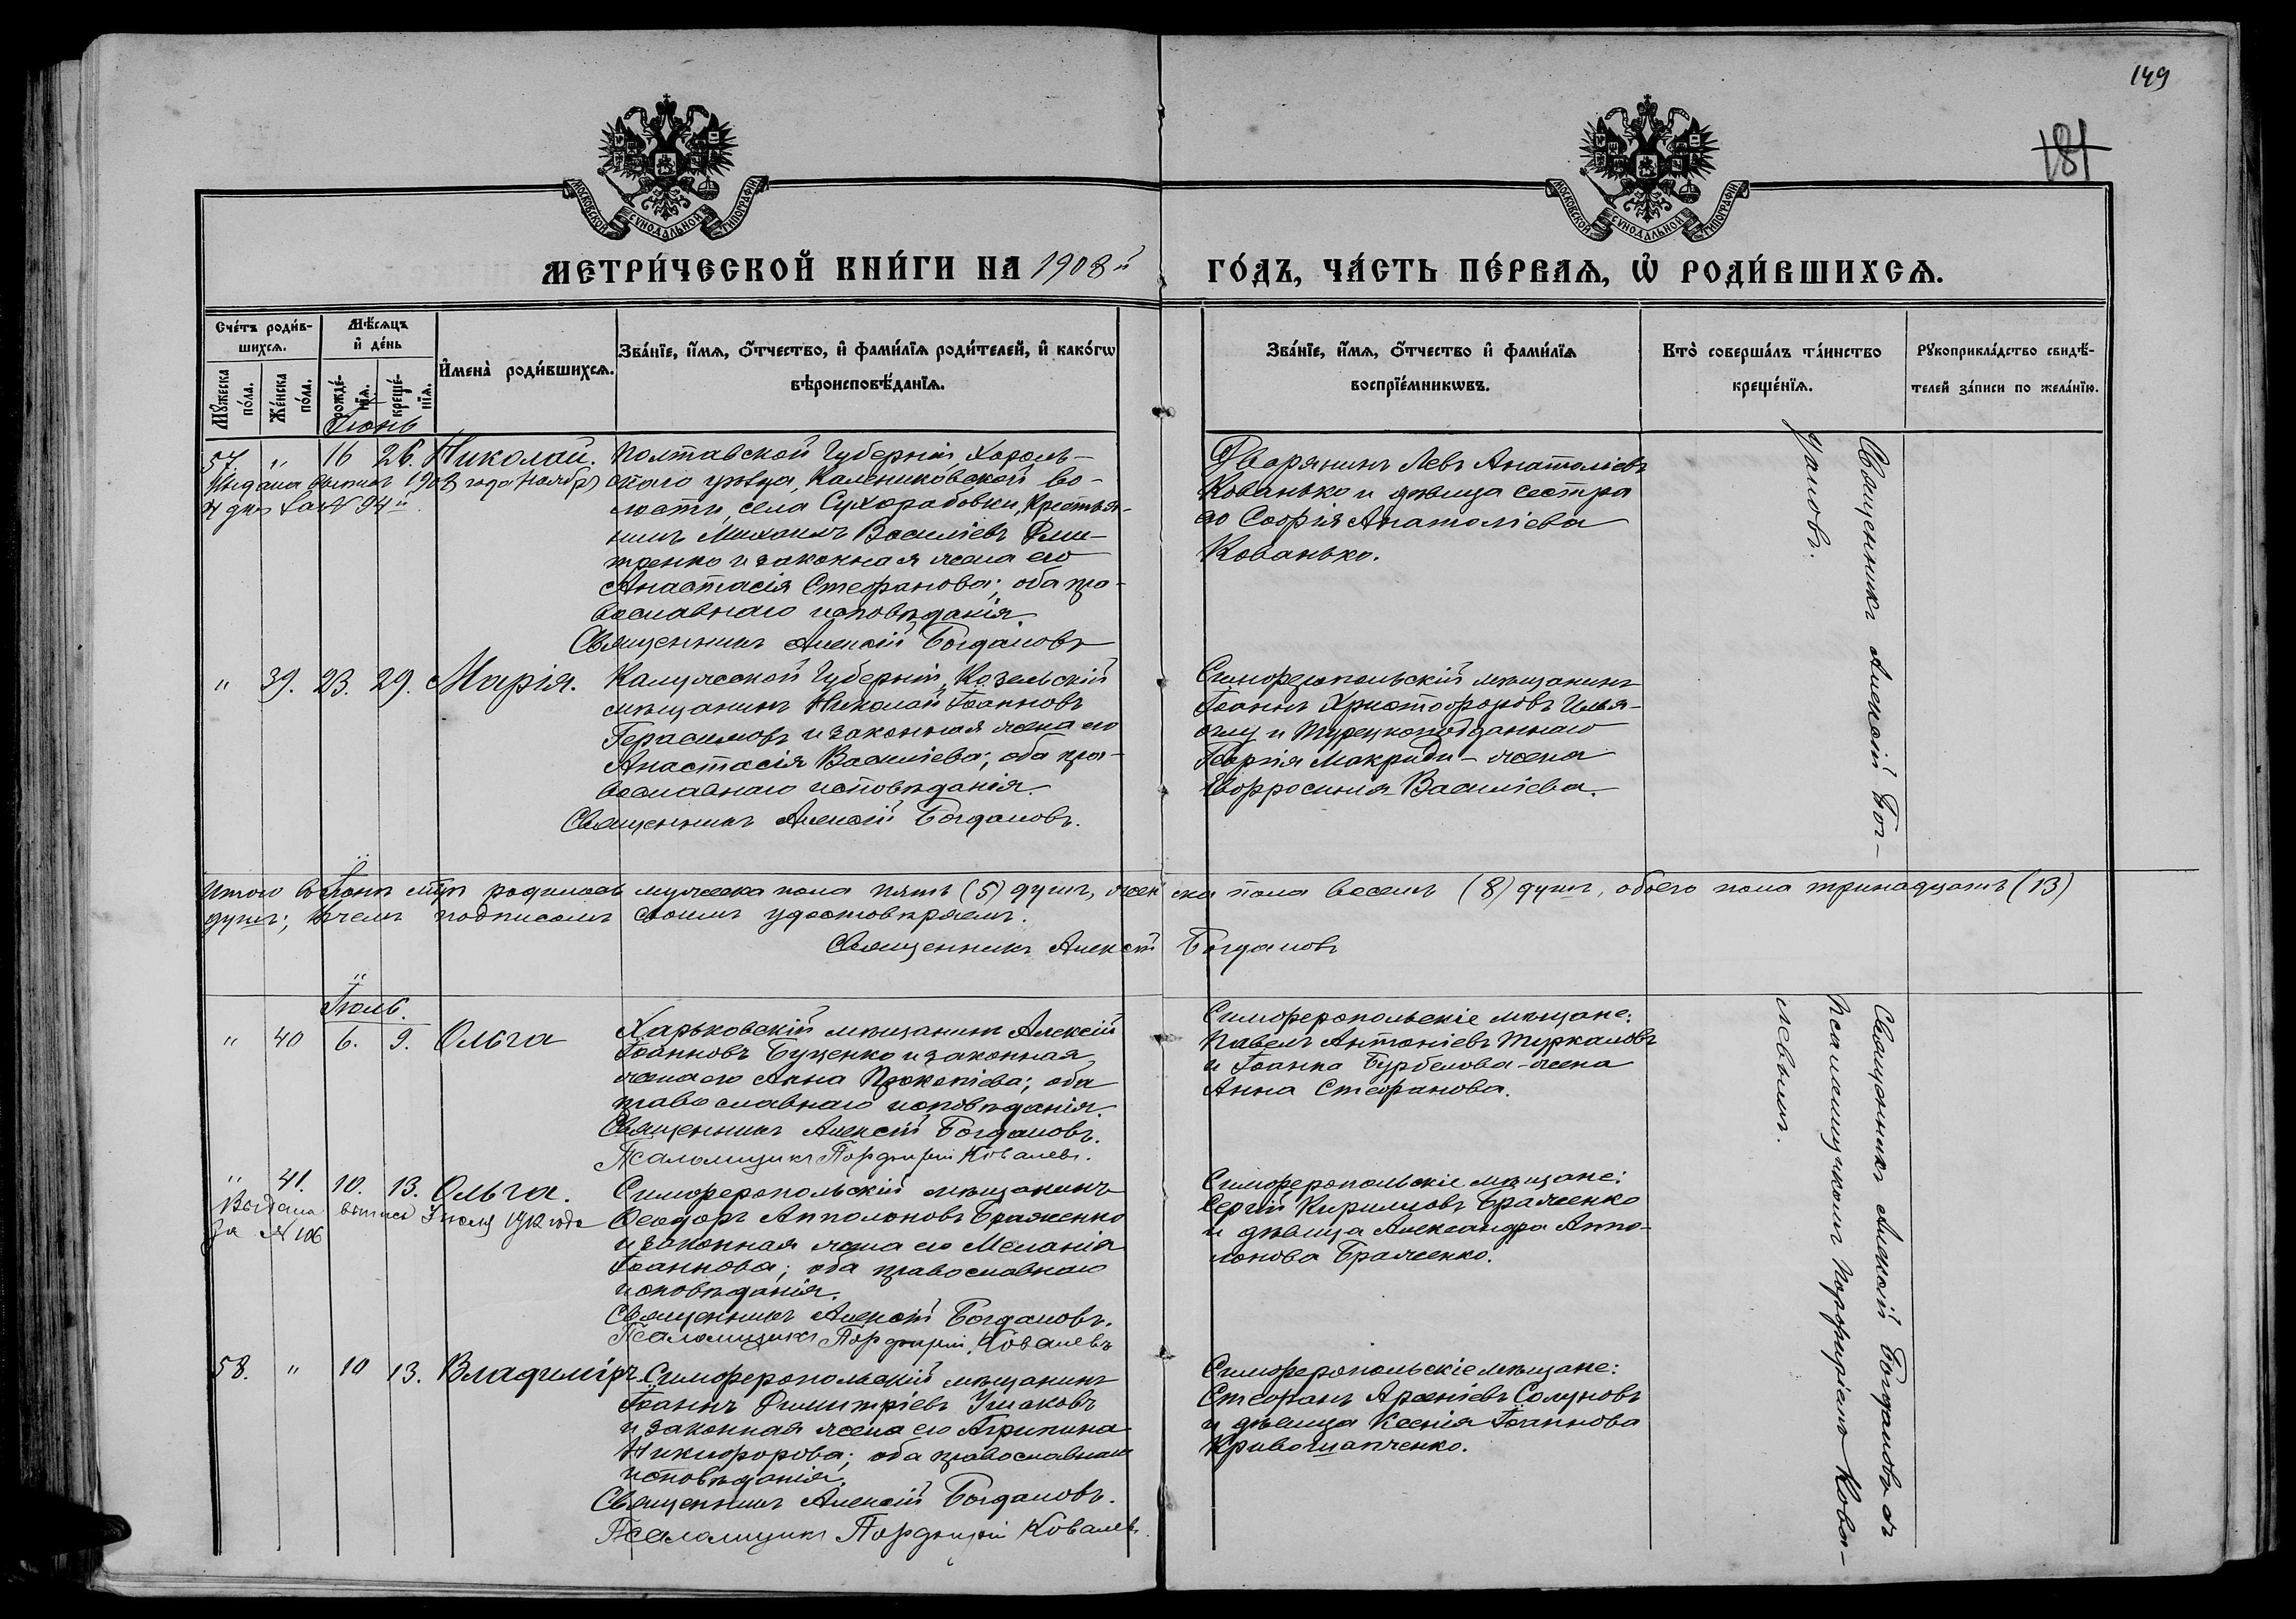 149
181
МОСКОВСКОЙ СѴНОДАЛЬНОЙ ТИПОГРАФІИ
МОСКОВСКОЙ СѴНОДАЛЬНОЙ ТИПОГРАФІИ
МЕТРИ́ЧЕСКОЙ КНИ́ГИ НА 1908й
ГО́ДЪ, ЧА́СТЬ ПЕ́РВАЯ, Ѡ҆ РОДИ́ВШИХСѦ.
Сче́тъ роди́в-
шихсѧ.
Мꙋ́жеска по́ла.
Же́нска по́ла.
Мѣ́сѧцъ
и҆ де́нь
рожде́-
нїѧ.
креще́-
нїѧ.
И҆мена̀ роди́вшихсѧ.
Зва́нїе, и҆́мѧ, ѻ҆́тчество, и҆ фами́лїѧ роди́телей, и҆ како́гѡ
вѣроисповѣ́данїѧ.
Зва́нїе, и҆́мѧ, ѻ҆́тчество и҆ фами́лїѧ
воспрїе́мникѡвъ.
Кто̀ соверша́лъ та́инство
креще́нїѧ.
Рꙋкоприкла́дство свидѣ́-
телей за́писи по жела́нїю.
Іюнь
57. " 16 26. Николай.
Выдана выпись 1908 года Ноябр)
4 дня за № 94й
Полтавской Губерніи Хороль-
скаго уѣзда, Калениковской во-
лости, села Сухорабовки, Крестья-
нинъ Михаилъ Василіевъ Дми-
тренко и законная жена его
Анастасія Стефанова; оба пра-
вославнаго исповѣданія.
Священникъ Алексій Богдановъ
Дворянинъ Левъ Анатоліевъ
Кованько и дѣвица сестра
его Софія Анатоліева
Кованько.
Священникъ Алексій Бог-
дановъ.
" 39. 23. 29. Марія.
Калужской Губерніи, Козельскій
мѣщанинъ Николай Іоанновъ
Герасимовъ и законная жена его
Анастасія Василіева; оба пра-
вославнаго исповѣданія.
Священникъ Алексій Богдановъ.
Симферопольскій мѣщанинъ
Іоаннъ Христофоровъ Илья-
оглу и Турецкоподданнаго
Георгія Макриди - жена
Евфросинія Василіева.
Итого въ Іюнѣ мцѣ родилось мужеска пола пять (5) душъ, женска пола восемь (8) душъ, обоего пола тринадцать (13)
душъ; въ чемъ подписомъ своимъ удостовѣряемъ.
Священникъ Алексій Богдановъ
Іюль.
" 40 6. 9. Ольга
Харьковскій мѣщанинъ Алексій
Іоанновъ Буценко и законная
жена его Анна Прокопіева; оба
православнаго исповѣданія.
Священникъ Алексій Богдановъ.
Псаломщикъ Порфирій Ковалевъ.
Симферопольскіе мѣщане:
Павелъ Антоніевъ Туркаловъ
и Іоанна Бурбелова - жена
Анна Стефанова.
Священникъ Алексій Богдановъ съ
Псаломщикомъ Порфиріемъ Кова-
левымъ.
" 41. 10. 13. Ольга.
Выдана выпись 3 іюля 1912 года
За № 106
Симферопольскій мѣщанинъ
Ѳеодоръ Апполоновъ Браженко
и законная жена его Меланія
Іоаннова; оба православнаго
исповѣданія.
Священникъ Алексій Богдановъ.
Псаломщикъ Порфирій Ковалевъ
Симферопольскіе мѣщане:
Сергій Кирилловъ Браженко
и дѣвица Александра Аппо-
лонова Браженко.
58. " 10 13. Владиміръ
Симферопольскій мѣщанинъ
Іоаннъ Димитріевъ Ушаковъ
и законная жена его Агрипина
Никифорова; оба православнаго
исповѣданія.
Священникъ Алексій Богдановъ.
Псаломщикъ Порфирій Ковалевъ.
Симферопольскіе мѣщане:
Стефанъ Арсеніевъ Солуновъ
и дѣвица Ксенія Іоаннова
Кривошапченко.